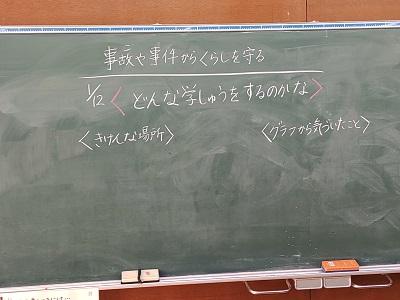 事故や事件からくらしを守る
1/12 〈どんな学しゅうをするのかな〉
〈きけんな場所〉
〈グラフから気づいたこと〉